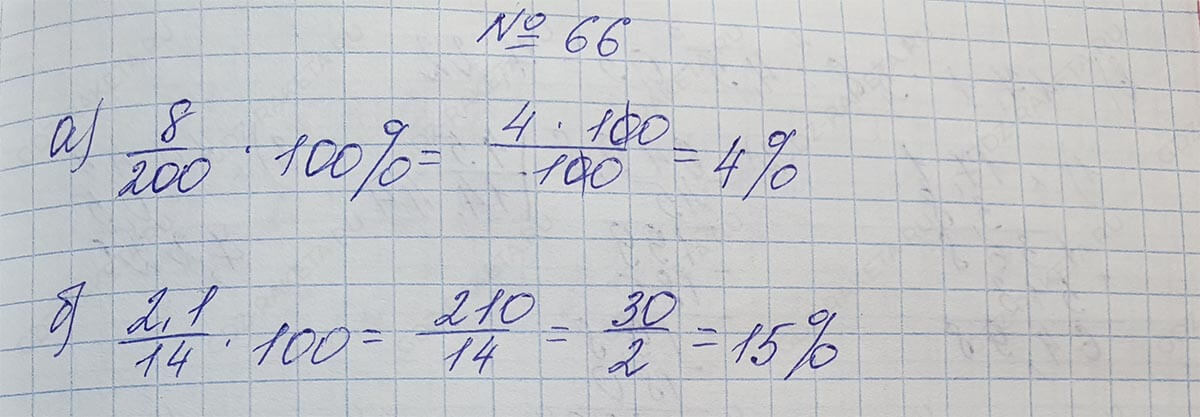 № 66
а) 8/200 · 100% = 4 · 100/100 = 4%
б) 2,1/14 · 100 = 210/14 = 30/2 = 15%